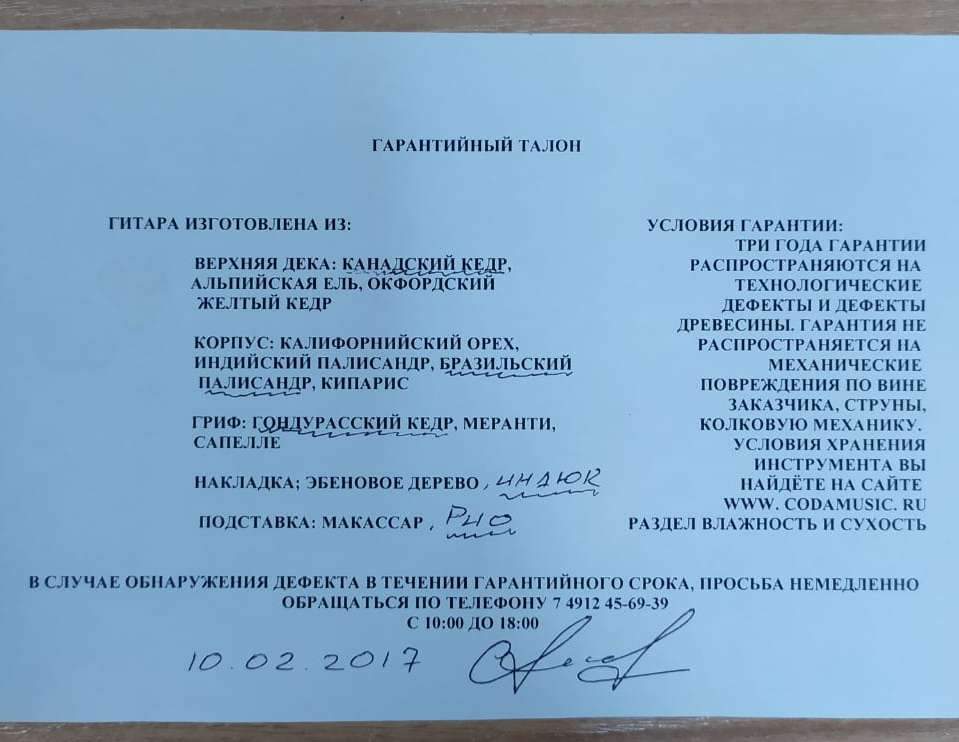 ГАРАНТИЙНЫЙ ТАЛОН
ГИТАРА ИЗГОТОВЛЕНА ИЗ:
ВЕРХНЯЯ ДЕКА: КАНАДСКИЙ КЕДР,
АЛЬПИЙСКАЯ ЕЛЬ, ОКФОРДСКИЙ
ЖЕЛТЫЙ КЕДР
КОРПУС: КАЛИФОРНИЙСКИЙ ОРЕХ,
ИНДИЙСКИЙ ПАЛИСАНДР, БРАЗИЛЬСКИЙ
ПАЛИСАНДР, КИПАРИС
ГРИФ: ГОНДУРАССКИЙ КЕДР, МЕРАНТИ,
САПЕЛЛЕ
НАКЛАДКА; ЭБЕНОВОЕ ДЕРЕВО, ИНДЮК
ПОДСТАВКА: МАКАССАР, РИО
УСЛОВИЯ ГАРАНТИИ:
ТРИ ГОДА ГАРАНТИИ
РАСПРОСТРАНЯЮТСЯ НА
ТЕХНОЛОГИЧЕСКИЕ
ДЕФЕКТЫ И ДЕФЕКТЫ
ДРЕВЕСИНЫ. ГАРАНТИЯ НЕ
РАСПРОСТРАНЯЕТСЯ НА
МЕХАНИЧЕСКИЕ
ПОВРЕЖДЕНИЯ ПО ВИНЕ
ЗАКАЗЧИКА, СТРУНЫ,
КОЛКОВУЮ МЕХАНИКУ.
УСЛОВИЯ ХРАНЕНИЯ
ИНСТРУМЕНТА ВЫ
НАЙДЁТЕ НА САЙТЕ
WWW. CODAMUSIC. RU
РАЗДЕЛ ВЛАЖНОСТЬ И СУХОСТЬ
В СЛУЧАЕ ОБНАРУЖЕНИЯ ДЕФЕКТА В ТЕЧЕНИИ ГАРАНТИЙНОГО СРОКА, ПРОСЬБА НЕМЕДЛЕННО
ОБРАЩАТЬСЯ ПО ТЕЛЕФОНУ 7 4912 45-69-39
С 10:00 ДО 18:00
10.02.2017